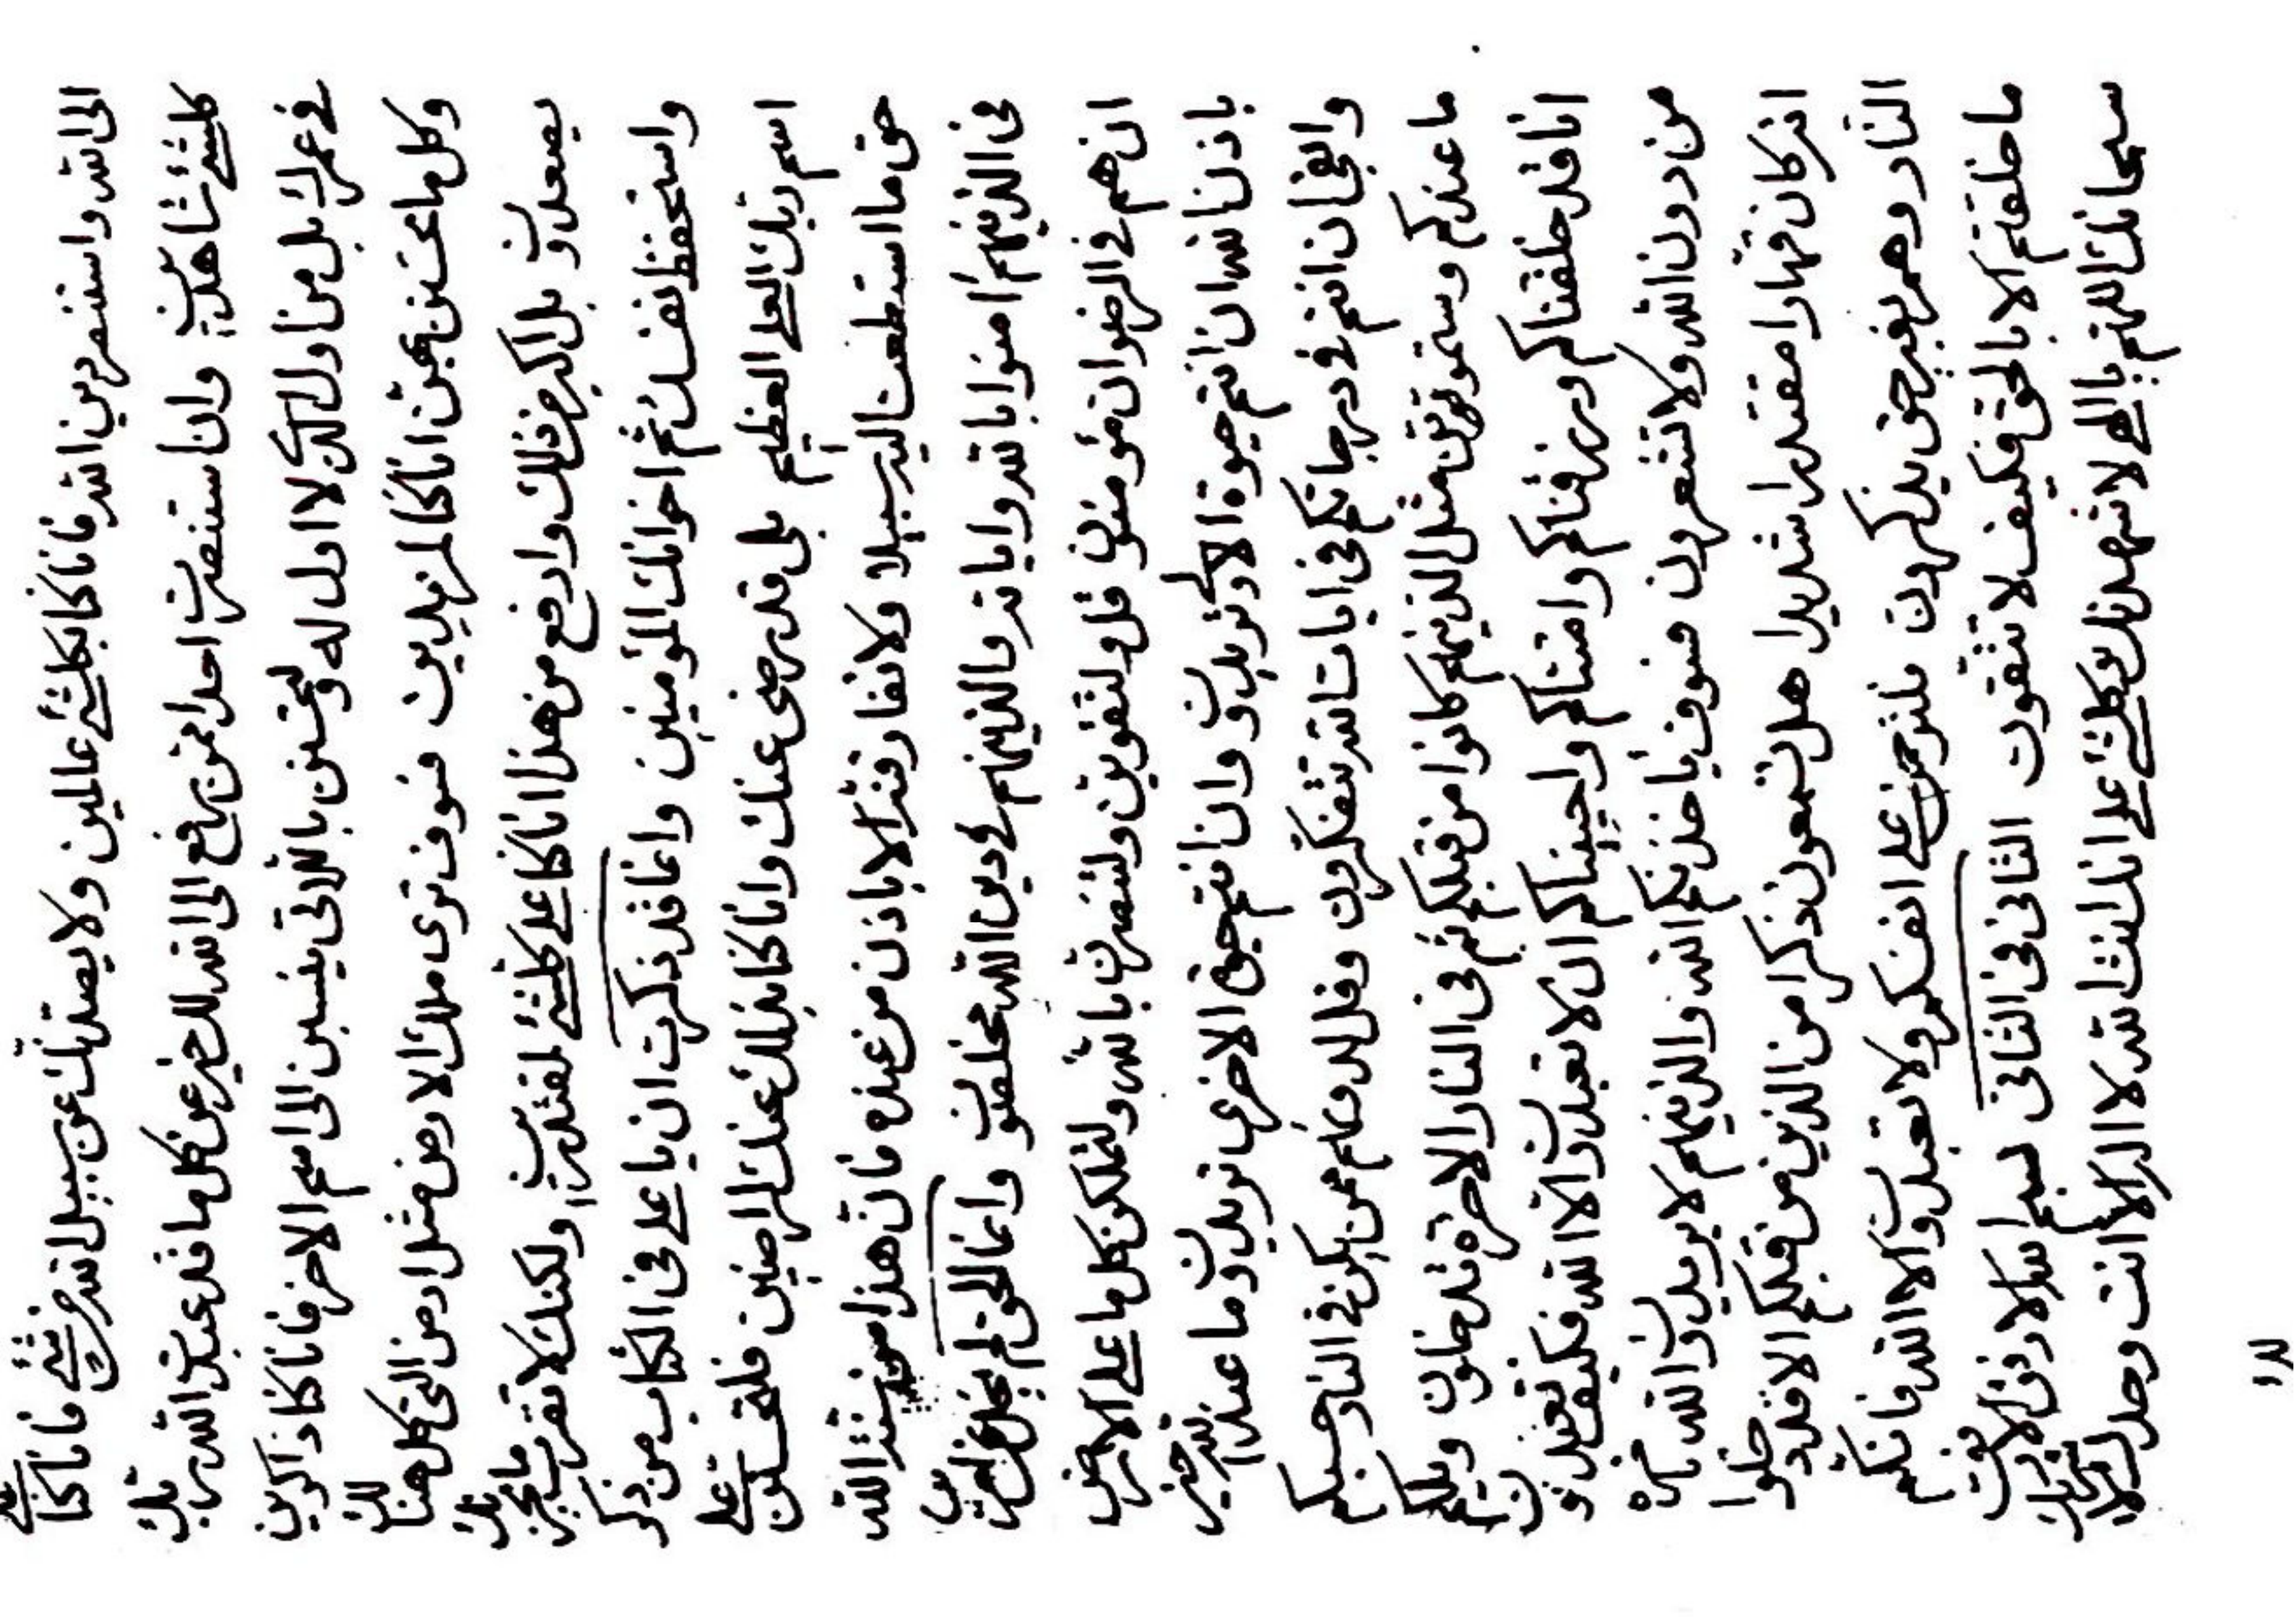 الى الله واستنصر دين الله فانا كنا بكلشئ عالمين ولا يصدنك عن سبيل الله من شئ فانا كنا على
كلشئ شاهدين وان استنصرت احدا ممن يرفع الى الله للخير عن كل ما قد عبد الله ربك
في عمرك بل من اول الذي لا اول له ولتحسنن باللاتى ينسبن الى اسم الاخر فانا كنا ذاكرين
وكل ما تحسنن بهن انا كنا لمزيدين فسوف ترى ملك الارض مثل ارض التى كل هنالك
يصعدون بل اكبر من ذلك وارفع من هذا انا كنا على كلشئ لمقتدرين ولكنك لا تقرب ما يحزنك
واستحفظ نفسك ثم اخوانك المؤمنين وانما قد ذكرت ان يا على فى الكتاب من ذكر
اسم ربك العلى العظيم بلى قد رضى عنك وانا كنا بذلك عنك لراضين فلتحسنن على
حق ما استطعت اليه سبيلا ولا تفارقنه الا باذن من عنده فان هذا من سنة الله
فى الذينهم امنوا بالله واياته والذينهم فى دين الله مخلصون وانما الحق لم يحل
ان هم فى الرضوان مؤمنون قل ولتقوين ولتنصرن بالله ولتملكن كل ما على الارض
باذن الله ان انتم حيوة الاولى تريدون وان انتم حيوة الاخرى تريدون ما عند الله خير
وابقى ان انتم فى درجاتكم فى ايات الله تتفكرون وقل لدونكم ممن يكن فى النار حسبكم
ما عندكم وستموتون مثل الذينهم كانوا من قبلكم ثم فى النار الاخرة تدخلون ويلكم
انا قد خلقناكم ورزقناكم وامتناكم واحييناكم ان لا تعبدون الا الله فكيف تعبدون
من دون الله ولا تشعرون فسوف ياخذنكم الله والذينهم لا يريدون الله نارة
انه كان قهارا مقتدرا شديدا هل تسمعون ذكرا من الذين من قبلكم الا قد دخلوا
النار وهم بغير حق يذكرون فلترحمن على انفسكم ولا تعبدون الا الله فانكم
ما خلقتم الا بالحق فكيف لا تتقون الثانى فى الثانى بسم الله الارفع الارفع
سبحانك اللهم يا الهى لاشهدنك وكلشئ على انك انت الله لا اله الا انت وحدك لا شريك
لدا